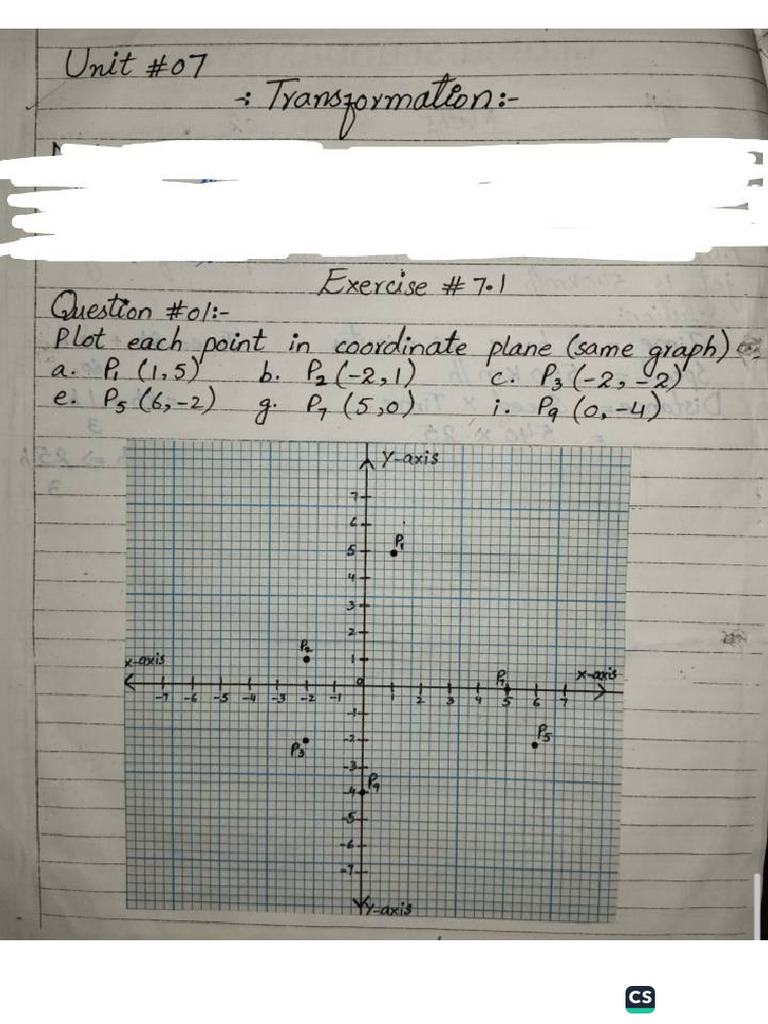 Unit #07
-: Transformation:-
Exercise # 7.1
Question #01:-
Plot each point in coordinate plane (same graph)
a. P₁ (1,5) b. P₂ (-2,1) c. P₃ (-2,-2)
e. P₅ (6,-2) g. P₇ (5,0) i. P₉ (0,-4)
Y-axis
7
6
P₁
5
4
3
2
P₂
1
x-axis
0
P₇
x-axis
-7 -6 -5 -4 -3 -2 -1 1 2 3 4 5 6 7
-1
P₅
-2
P₃
-3
P₉
-4
-5
-6
-7
Y-axis
CS